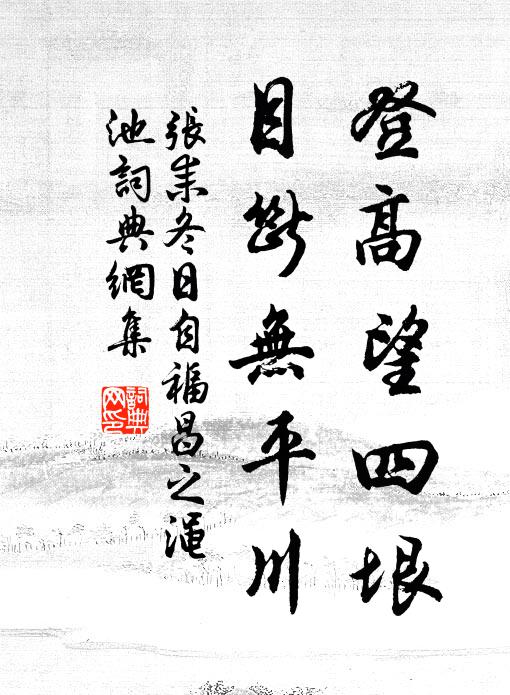 登高望四垠
目斷無平川
張耒冬日自福昌之澠
池詞典網集
詞典
网印